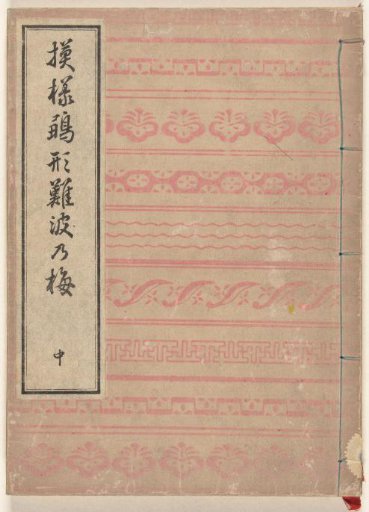 摸様雛形難波乃梅
中